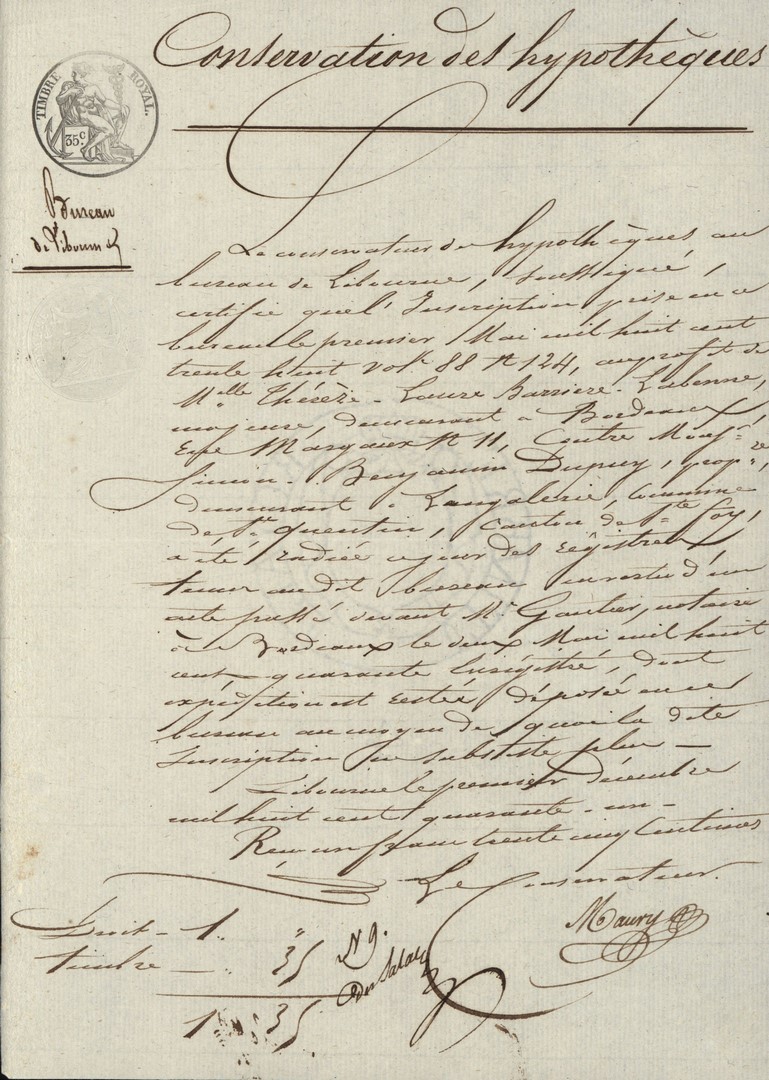 Conservation des hypothèques
TIMBRE ROYAL.
35 c.
Bureau
de Libourne
Le conservateur des hypothèques au
bureau de Libourne, soussigné,
certifie que l'Inscription prise en ce
bureau le premier Mai mil huit cent
trente huit vol. 88 N 124, au profit de
Mlle Thérèze-Laure Barriere-Labenne,
majeure, demeurant à Bordeaux,
Margaux N 11, Contre Monsr
Simon-Benjamin Dupuy, propre,
demeurant à Langalerie, Commune
de St Quentin, Canton de Ste Foy,
a été radiée ce jour des Régistres
tenus au dit bureau en vertu d'un
acte passé devant Me Gautier, notaire
à Bordeaux le deux Mai mil huit
cent quarante Enrégistré, dont
expédition est restée déposée en ce
bureau au moyen de quoi la dite
Inscription ne subsiste plus —
Libourne le premier décembre
mil huit cent quarante-un-
Reçu un franc trente cinq Centimes
Le Conservateur.
Maury
Droit - 1. "
timbre - " 35
1 35
N 9.